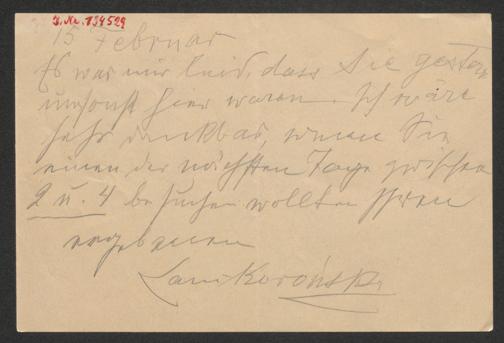 I.N. 134529
15 Februar
Es war mir leid, dass Sie gestern
umsonst hier waren. Ich wäre
sehr dankbar, wenn Sie
einen der nächsten Tage zwischen
2 u. 4 besuchen wollten Ihren
ergebenen
Lanckoroński